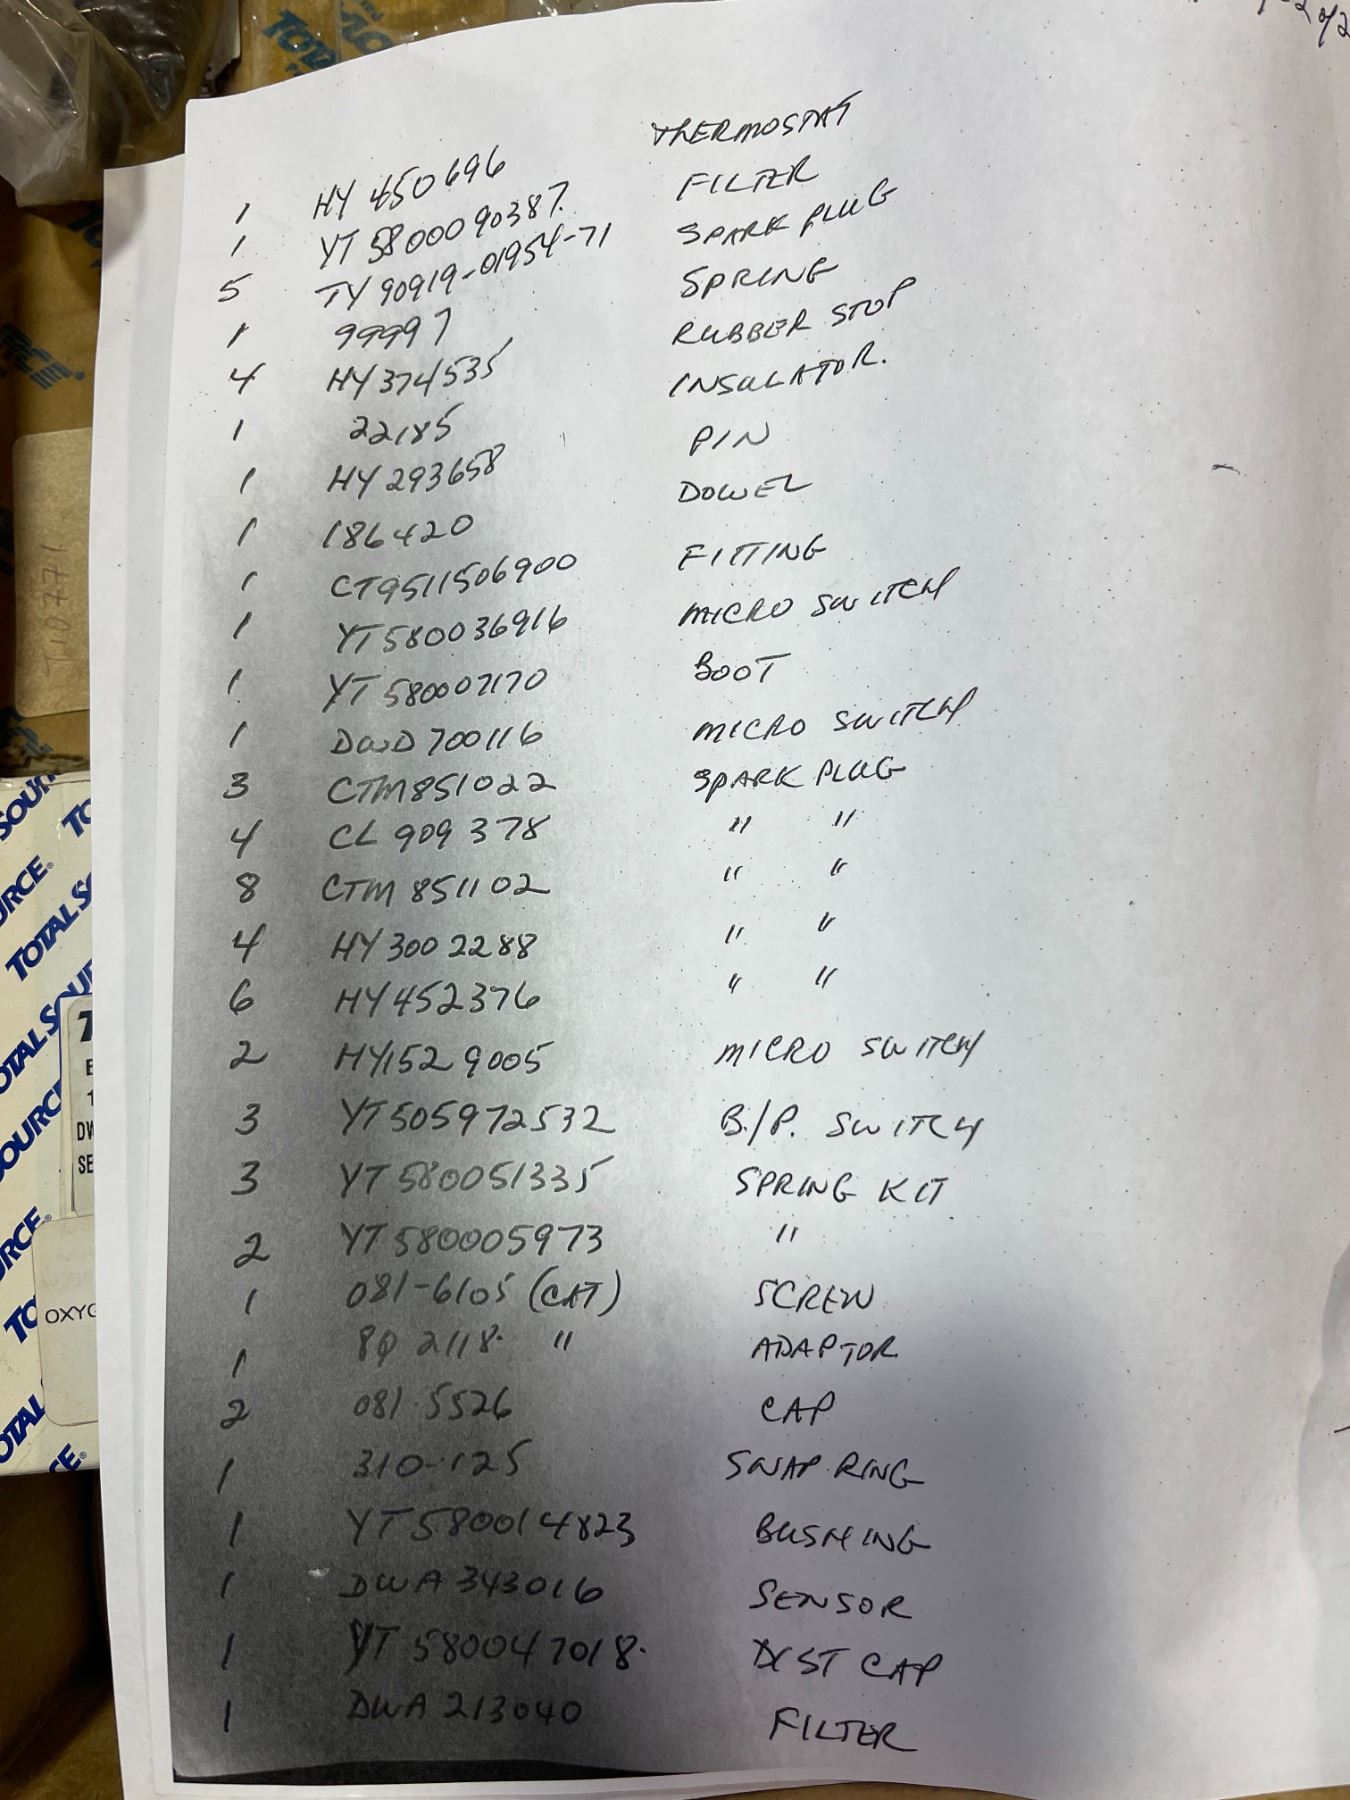 1 HY 450696 THERMOSTAT
1 YT 5800090387. FILTER
5 TY 90919-01954-71 SPARK PLUG
1 99997 SPRING
4 HY374535 RUBBER STOP
1 22185 INSULATOR.
1 HY 293658 PIN
1 186420 DOWEL
1 CT9511506900 FITTING
1 YT580036916 MICRO SWITCH
1 YT 580007170 BOOT
1 DWD700116 MICRO SWITCH
3 CTM851022 SPARK PLUG
4 CL 909378 " "
8 CTM 851102 " "
4 HY3002288 " "
6 HY452376 " "
2 HY1529005 MICRO SWITCH
3 YT505972532 B./P. SWITCH
3 YT580051335 SPRING KIT
2 YT580005973 "
1 081-6105 (CAT) SCREW
1 2118. " ADAPTOR
2 081-5526 CAP
1 310-125 SNAP RING
1 YT580014823 BUSHING
1 DWA 343016 SENSOR
1 YT 580047018. DIST CAP
1 DWA 213040 FILTER
TOTAL SOURCE®
OXYG